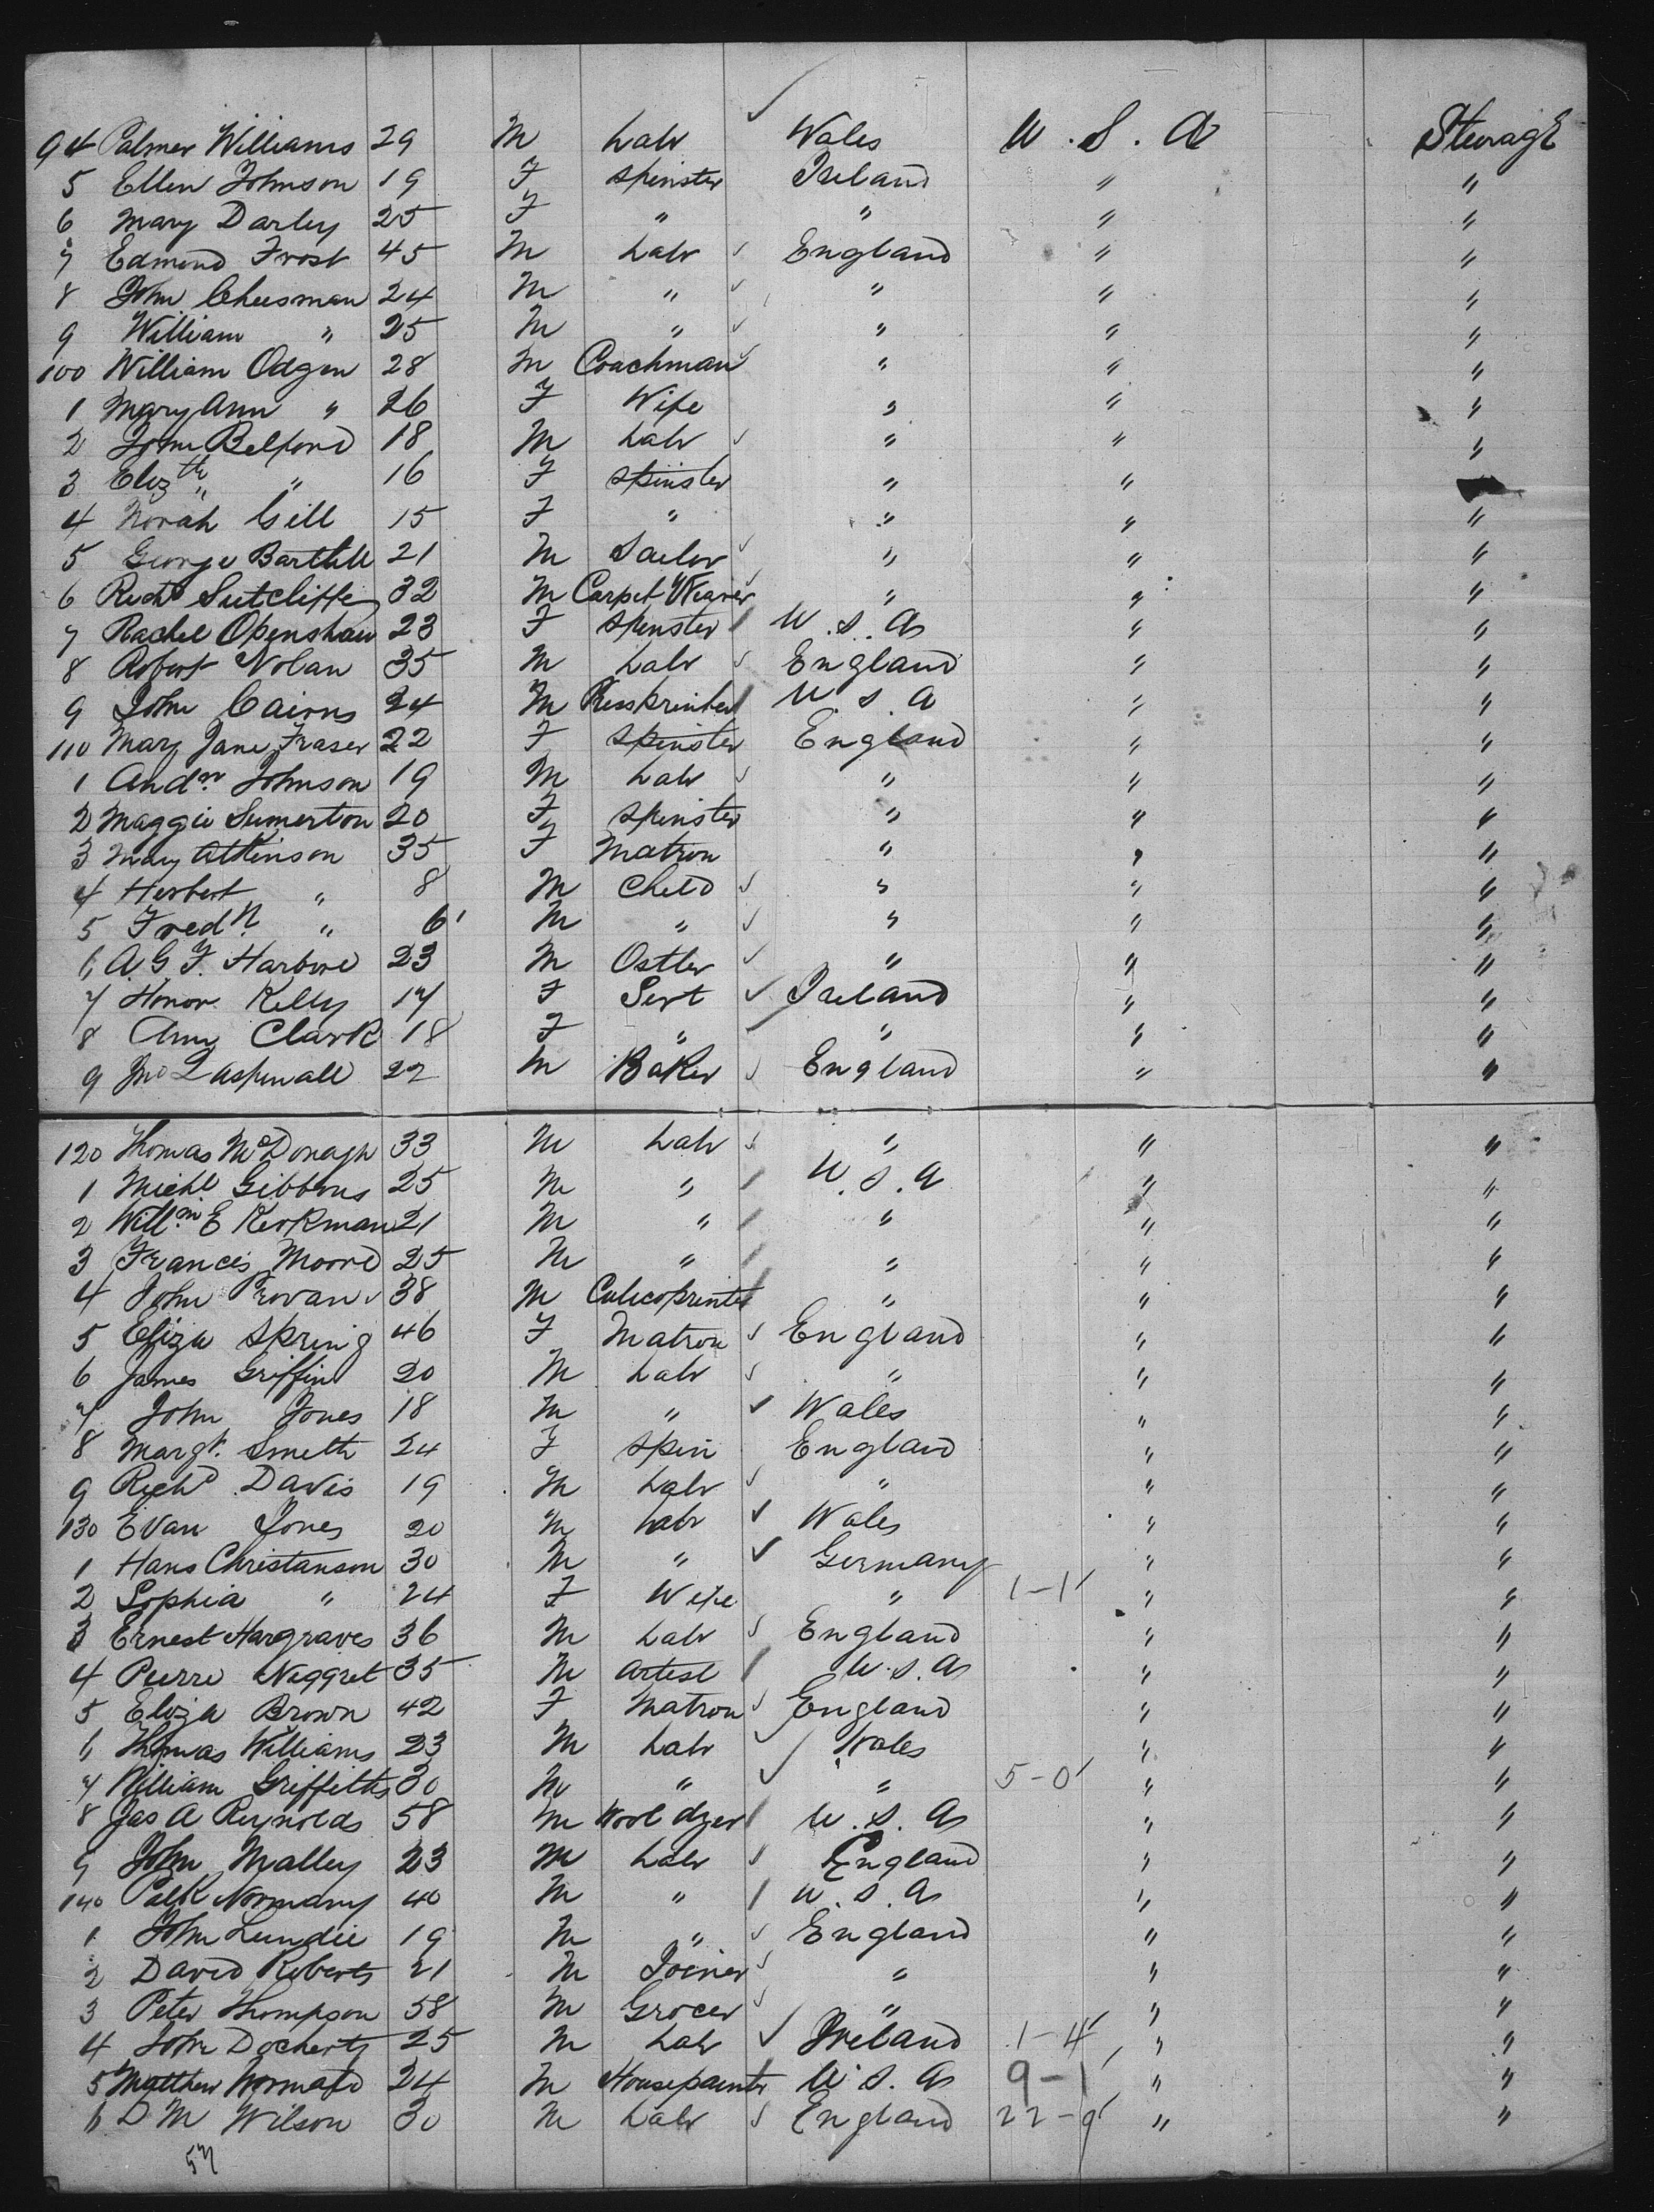 94 Palmer Williams 29 M Labr Wales U.S.A Steerage
5 Ellen Johnson 19 F Spinster Ireland " "
6 Mary Darley 25 F " " " "
7 Edmond Frost 45 M Labr England " "
8 John Cheesman 24 M " " " "
9 William " 25 M " " " "
100 William Odgen 28 M Coachman " " "
1 Mary Ann " 26 F Wife " " "
2 John Belford 18 M Labr " " "
3 Elizth " 16 F Spinster " "
4 Norah Gill 15 F " " " "
5 George Bartlett 21 M Sailor " " "
6 Richd Sutcliffe 32 M Carpet Weaver " " "
7 Rachel Openshaw 23 F Spinster U.S.A " "
8 Robert Nolan 35 M Labr England " "
9 John Cairns 24 M Pressprinter U.S.A " "
110 Mary Jane Fraser 22 F Spinster England " "
1 Andw Johnson 19 M Labr " " "
2 Maggie Sumerton 20 F Spinster " " "
3 Mary Atkinson 35 F Matron " " "
4 Herbert " 8 M Child " " "
5 Fredk " 6 M " " " "
6 A G F. 23 M Ostler " " "
7 Honor Kelly 17 F Servt Ireland " "
8 Ann Clark 18 F " " " "
9 Jno L Aspinall 22 M Baker England " "
120 Thomas McDonagh 33 M Labr " " "
1 Michl Gibbons 25 M " U.S.A " "
2 Willm E Kirkman 21 M " " " "
3 Francis Moore 25 M " " " "
4 John 38 M Calicoprinter " " "
5 Eliza Spring 46 F Matron England " "
6 James Griffin 20 M Labr " " "
7 John Jones 18 M " Wales " "
8 Margt. Smith 24 F Spin England " "
9 Richd Davis 19 M Labr " " "
130 Evan Jones 20 M Labr Wales " "
1 Hans Christanson 30 M " Germany " "
2 Sophia " 24 F Wife " 1-1 " "
3 Ernest Hargraves 36 M Labr England " "
4 Pierre Neggret 35 M Artist U.S.A " "
5 Eliza Brown 42 F Matron England " "
6 Thomas Williams 23 M Labr Wales " "
7 William Griffiths 30 M " " 5-0 " "
8 Jas A Reynolds 58 M Wool dyer U.S.A " "
9 John Malley 23 M Labr England " "
140 Patk Normany 40 M " U.S.A " "
1 John Lundie 19 M " England " "
2 David Roberts 21 M Joiner " " "
3 Peter Thompson 58 M Grocer " " "
4 John Docherty 25 M Labr Ireland 1-4 " "
5 Matthew 24 M Housepainter U.S.A 9-1 " "
6 D M Wilson 30 M Labr England 22-9 " "
57